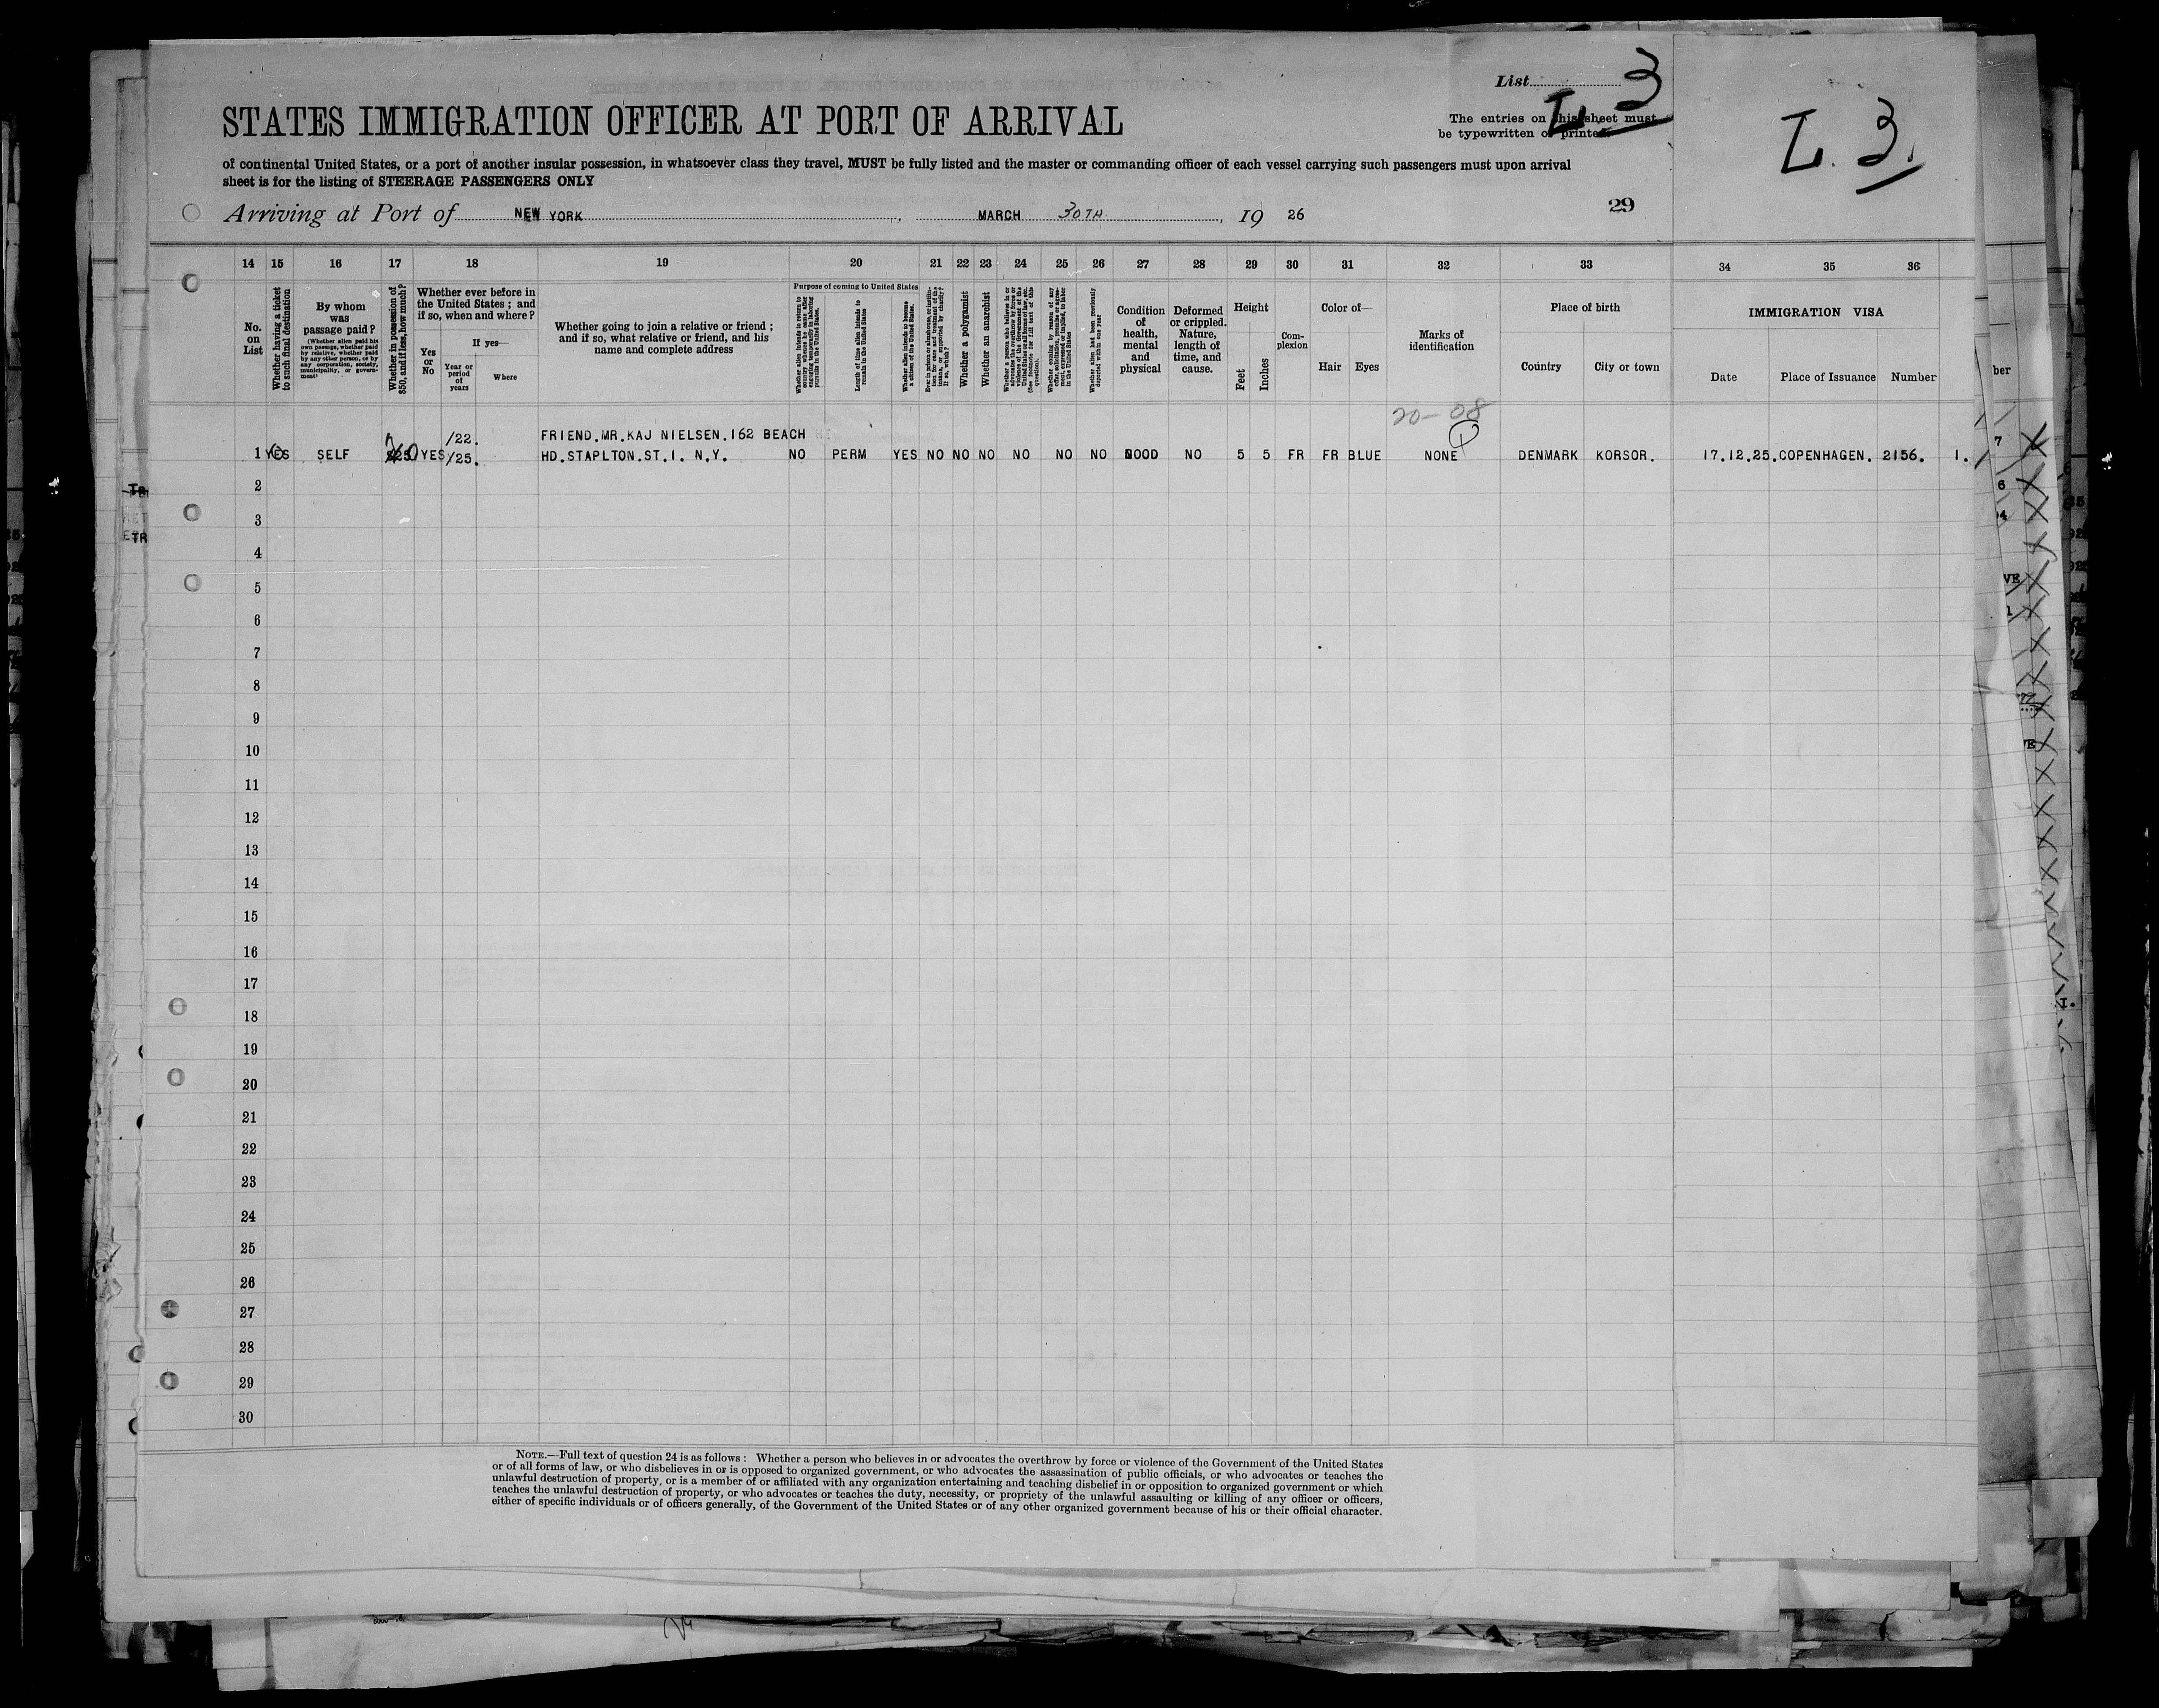 List 3
L. 3
L. 3.
STATES IMMIGRATION OFFICER AT PORT OF ARRIVAL
The entries on this sheet must
be typewritten or printed.
of continental United States, or a port of another insular possession, in whatsoever class they travel, MUST be fully listed and the master or commanding officer of each vessel carrying such passengers must upon arrival
sheet is for the listing of STEERAGE PASSENGERS ONLY
Arriving at Port of NEW YORK, MARCH 30TH, 19 26
29
14 15 16 17 18 19 20 21 22 23 24 25 26 27 28 29 30 31 32 33 34 35 36
No. on List
Whether having a ticket to such final destination
By whom was passage paid?
(Whether alien paid his own passage, whether paid by relative, whether paid by any other person, or by any corporation, society, municipality, or government)
Whether in possession of $50, and if less, how much?
Whether ever before in the United States; and if so, when and where?
Yes or No
If yes—
Year or period of years
Where
Whether going to join a relative or friend; and if so, what relative or friend, and his name and complete address
Purpose of coming to United States
Length of time alien intends to remain in the United States
Whether alien intends to become a citizen of the United States.
Whether a polygamist
Whether an anarchist
Whether alien had been previously deported within one year
Condition of health, mental and physical
Deformed or crippled. Nature, length of time, and cause.
Height
Feet
Inches
Com-plexion
Color of—
Hair
Eyes
Marks of identification
Place of birth
Country
City or town
IMMIGRATION VISA
Date
Place of Issuance
Number
20-08
/22. FRIEND.MR.KAJ NIELSEN.162 BEACH
1 YES SELF YES /25. HD.STAPLTON.ST.I. N.Y. NO PERM YES NO NO NO NO NO NO GOOD NO 5 5 FR FR BLUE NONE DENMARK KORSOR. 17.12.25.COPENHAGEN. 2156. 1.
2
3
4
5
6
7
8
9
10
11
12
13
14
15
16
17
18
19
20
21
22
23
24
25
26
27
28
29
30
NOTE.—Full text of question 24 is as follows: Whether a person who believes in or advocates the overthrow by force or violence of the Government of the United States
or of all forms of law, or who disbelieves in or is opposed to organized government, or who advocates the assassination of public officials, or who advocates or teaches the
unlawful destruction of property, or is a member of or affiliated with any organization entertaining and teaching disbelief in or opposition to organized government or which
teaches the unlawful destruction of property, or who advocates or teaches the duty, necessity, or propriety of the unlawful assaulting or killing of any officer or officers,
either of specific individuals or of officers generally, of the Government of the United States or of any other organized government because of his or their official character.